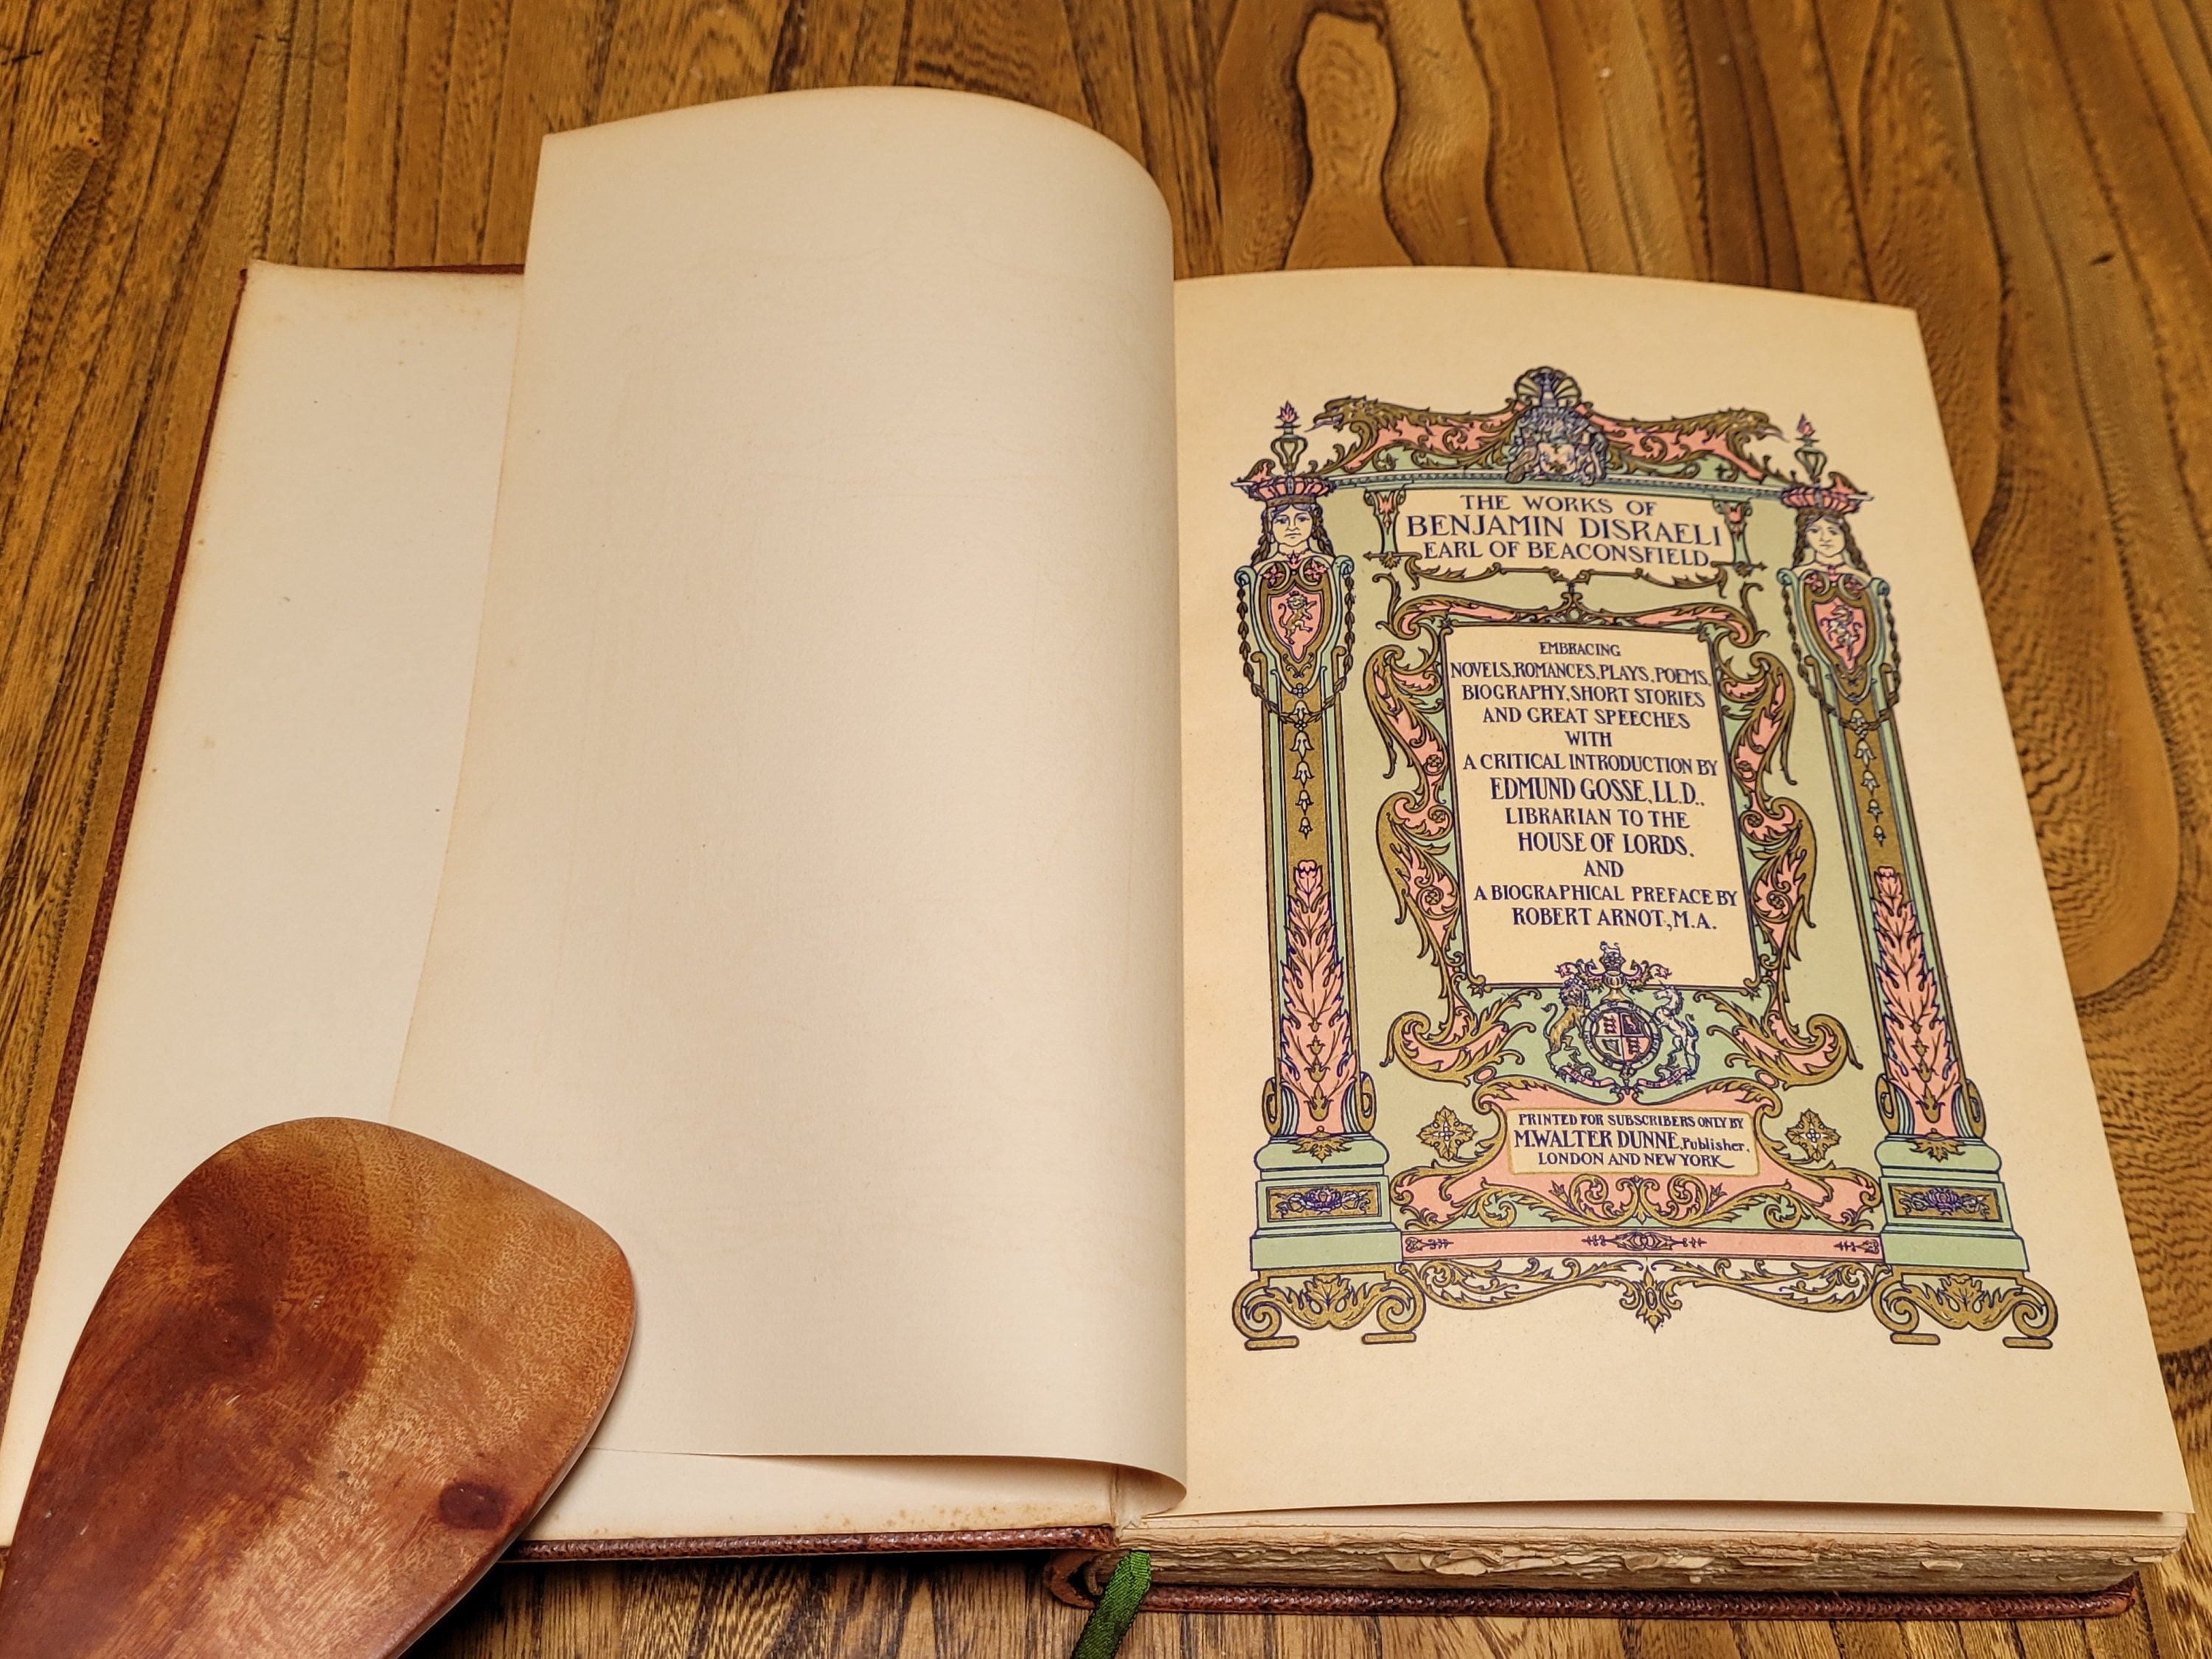 THE WORKS OF
BENJAMIN DISRAELI
EARL OF BEACONSFIELD
EMBRACING
NOVELS, ROMANCES, PLAYS, POEMS,
BIOGRAPHY, SHORT STORIES
AND GREAT SPEECHES
WITH
A CRITICAL INTRODUCTION BY
EDMUND GOSSE, LL.D.,
LIBRARIAN TO THE
HOUSE OF LORDS,
AND
A BIOGRAPHICAL PREFACE BY
ROBERT ARNOT, M.A.
PRINTED FOR SUBSCRIBERS ONLY BY
M. WALTER DUNNE, Publisher,
LONDON AND NEW YORK